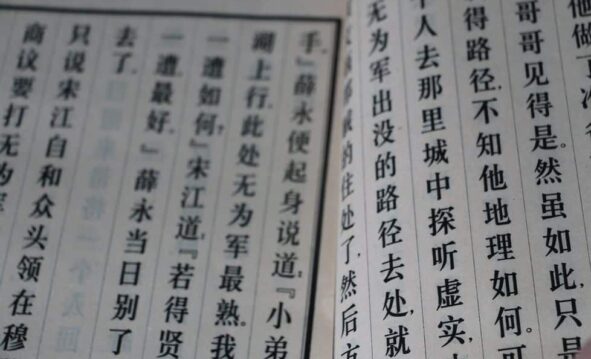 他做了冷
哥哥见得是。然虽如此,只
得路径,不知他地理如何。可
人去那里城中探听虚实,
无为军出没的路径去处,就
的住处了,然后方
手。』薛永便起身说道:『小弟
湖上行,此处无为军最熟。我
一遭如何?』宋江道:『若得贤
一遭最好。』薛永当日别了
去了。
只说宋江自和众头领在穆
商议要打无为军